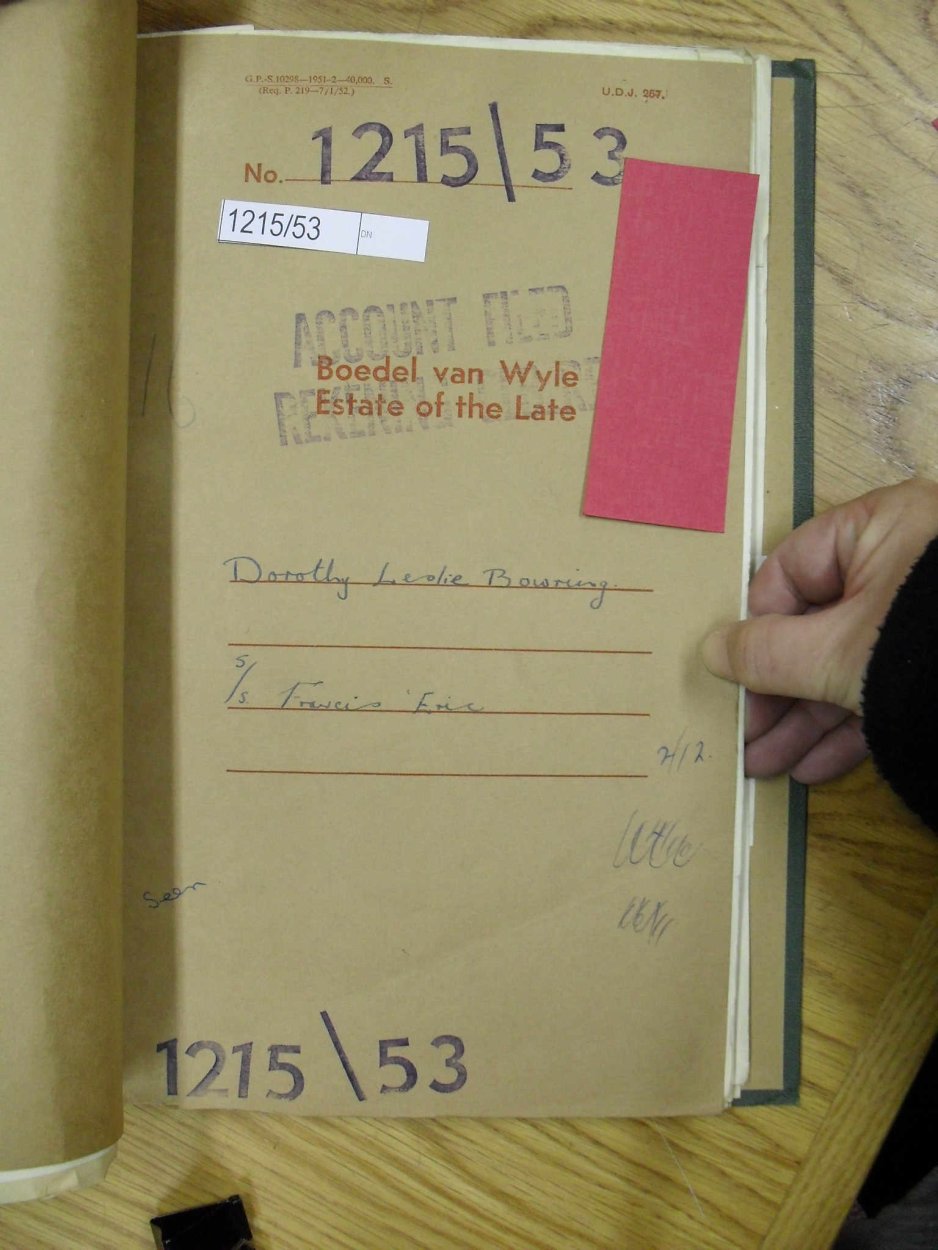 G.P.-S.10298—1951-2—40,000. S.
(Req. P. 219—7/1/52.)
U.D.J. 267.
No. 1215\53
1215/53
DN
ACCOUNT FILED
Boedel van Wyle
REKENING
Estate of the Late
Dorothy Leslie Bowring.
s/s. Francis Eric
2/12.
Seen
1215\53